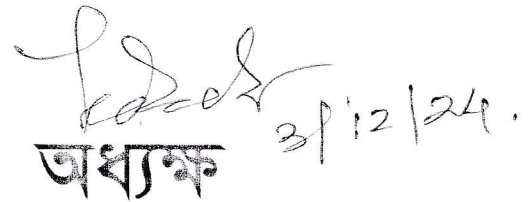 3/12/24.
অধ্যক্ষ